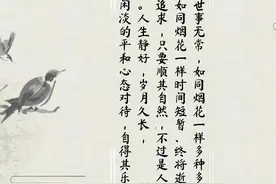 世事无常，如同烟花一样多种多
如同烟花一样时间短暂、终将逝
追求，只要顺其自然，不过是人
。人生静好，岁月久长，
闲淡的平和心态对待，自得其乐